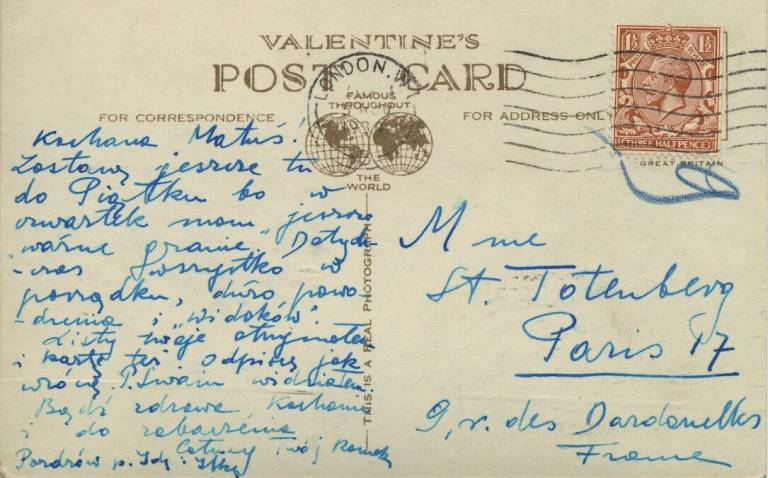 VALENTINE'S
POST CARD
LONDON. W
FAMOUS
THROUGHOUT
THE
WORLD
FOR CORRESPONDENCE
FOR ADDRESS ONLY
1½ 1½
THREE HALFPENCE
GREAT BRITAIN
Kochana Matuś!
Zostanę jeszcze tu
do Piątku bo w
czwartek mam jeszcze
ważne granie. Dotych-
-czas wszystko w
porządku, dużo powo-
-dzenia i „widoków".
Listy twoje otrzymałem
i kartę też odpiszę jak
wrócę. P. Swain widziałem.
Bądź zdrowa, Kochanie
i do zobaczenia
Całuję Twój Romek
Pozdrów p. Idę i
THIS IS A REAL PHOTOGRAPH
Mme
St. Totenberg
Paris 17
9, r. des Dardanelles
France